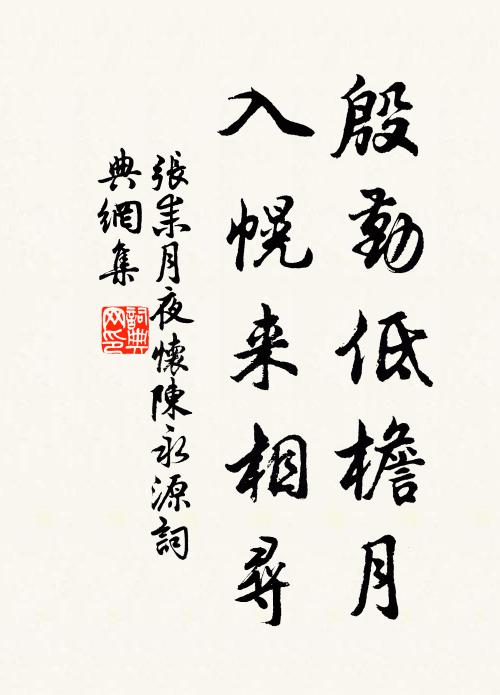 殷勤低檐月
入幌来相尋
張耒月夜懷陳永源詞
典網集
詞典
网印